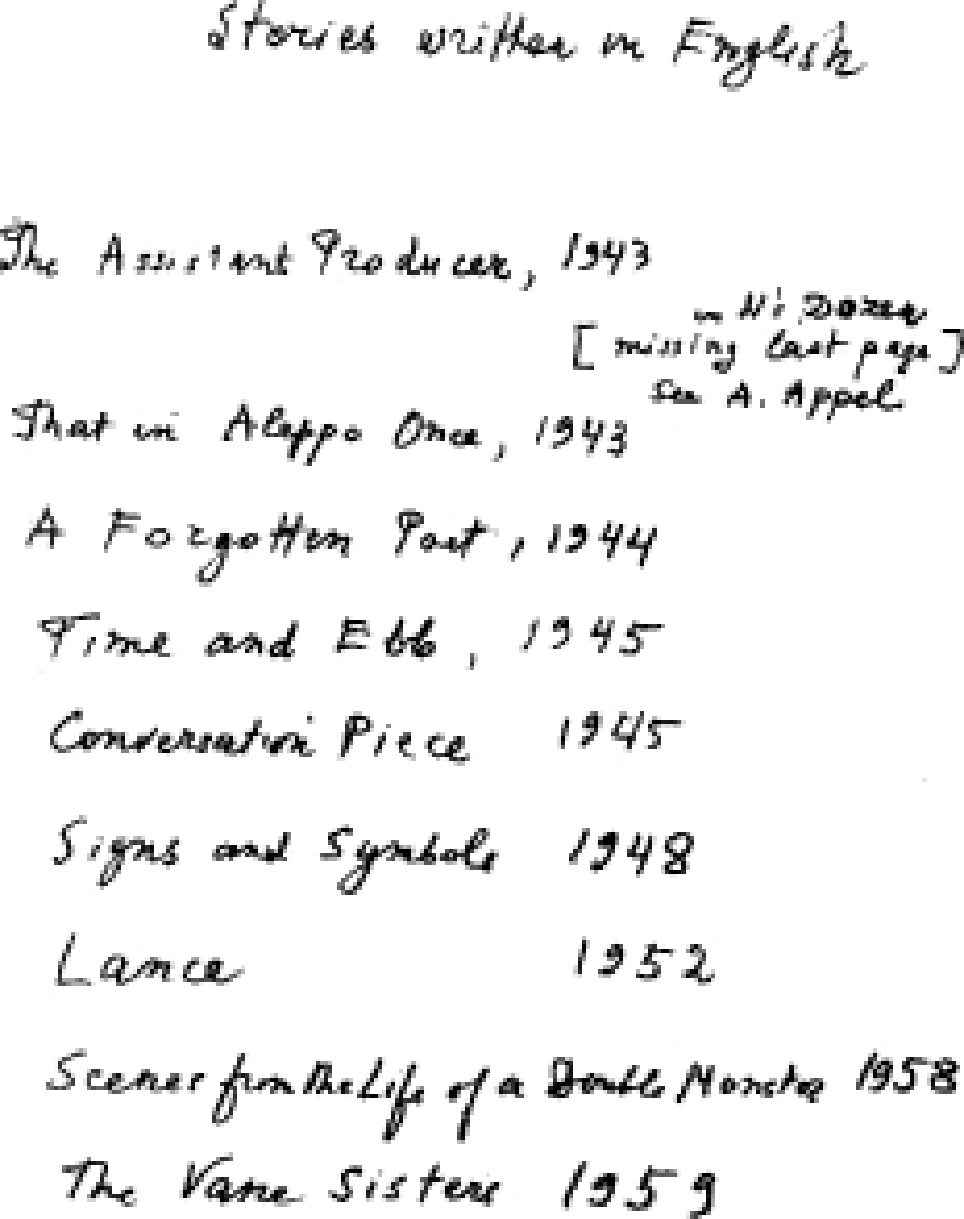 Stories written in English
The Assistant Producer, 1943
in N's Dozen
[missing last page]
See A. Appel
That in Aleppo Once, 1943
A Forgotten Poet, 1944
Time and Ebb, 1945
Conversation Piece 1945
Signs and Symbols 1948
Lance 1952
Scenes from the Life of a Double Monster 1958
The Vane Sisters 1959